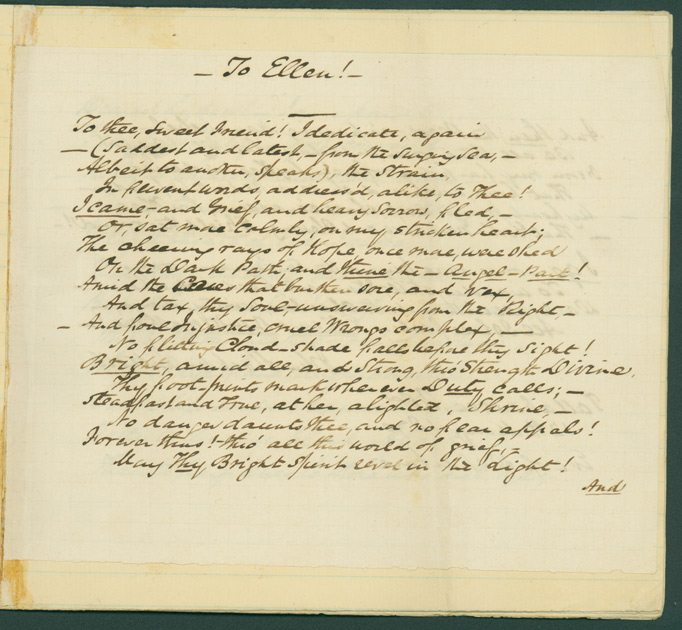 — To Ellen! —
To thee, sweet Friend! I dedicate, again
— (Saddest and latest, — from the Surging Sea, —
Albeit to another, speaks), the Strain,
In fervent words, address'd, alike, to Thee!
I came, and Grief, and heavy Sorrow, fled, —
Or, sat more calmly, on my stricken heart;
The cheering rays of Hope, once more, were shed
On the Dark Path, and thine the — Angel — Part!
Amid the Cares that burthen sore, and vex,
And tax, thy Soul — unswerving from the Right —
— And foul Injustice, cruel Wrongs complex —
No flitting Cloud — shade falls before thy Sight!
Bright, amid all, and Strong, thro' Strength Divine,
Thy foot-prints mark wherever Duty calls; —
Steadfast and True, at her, alighted, Shrine, —
No danger daunts thee, and no fear appals!
Forever thus! — tho' all this world of grief, —
May Thy Bright Spirit revel in the Light!
And